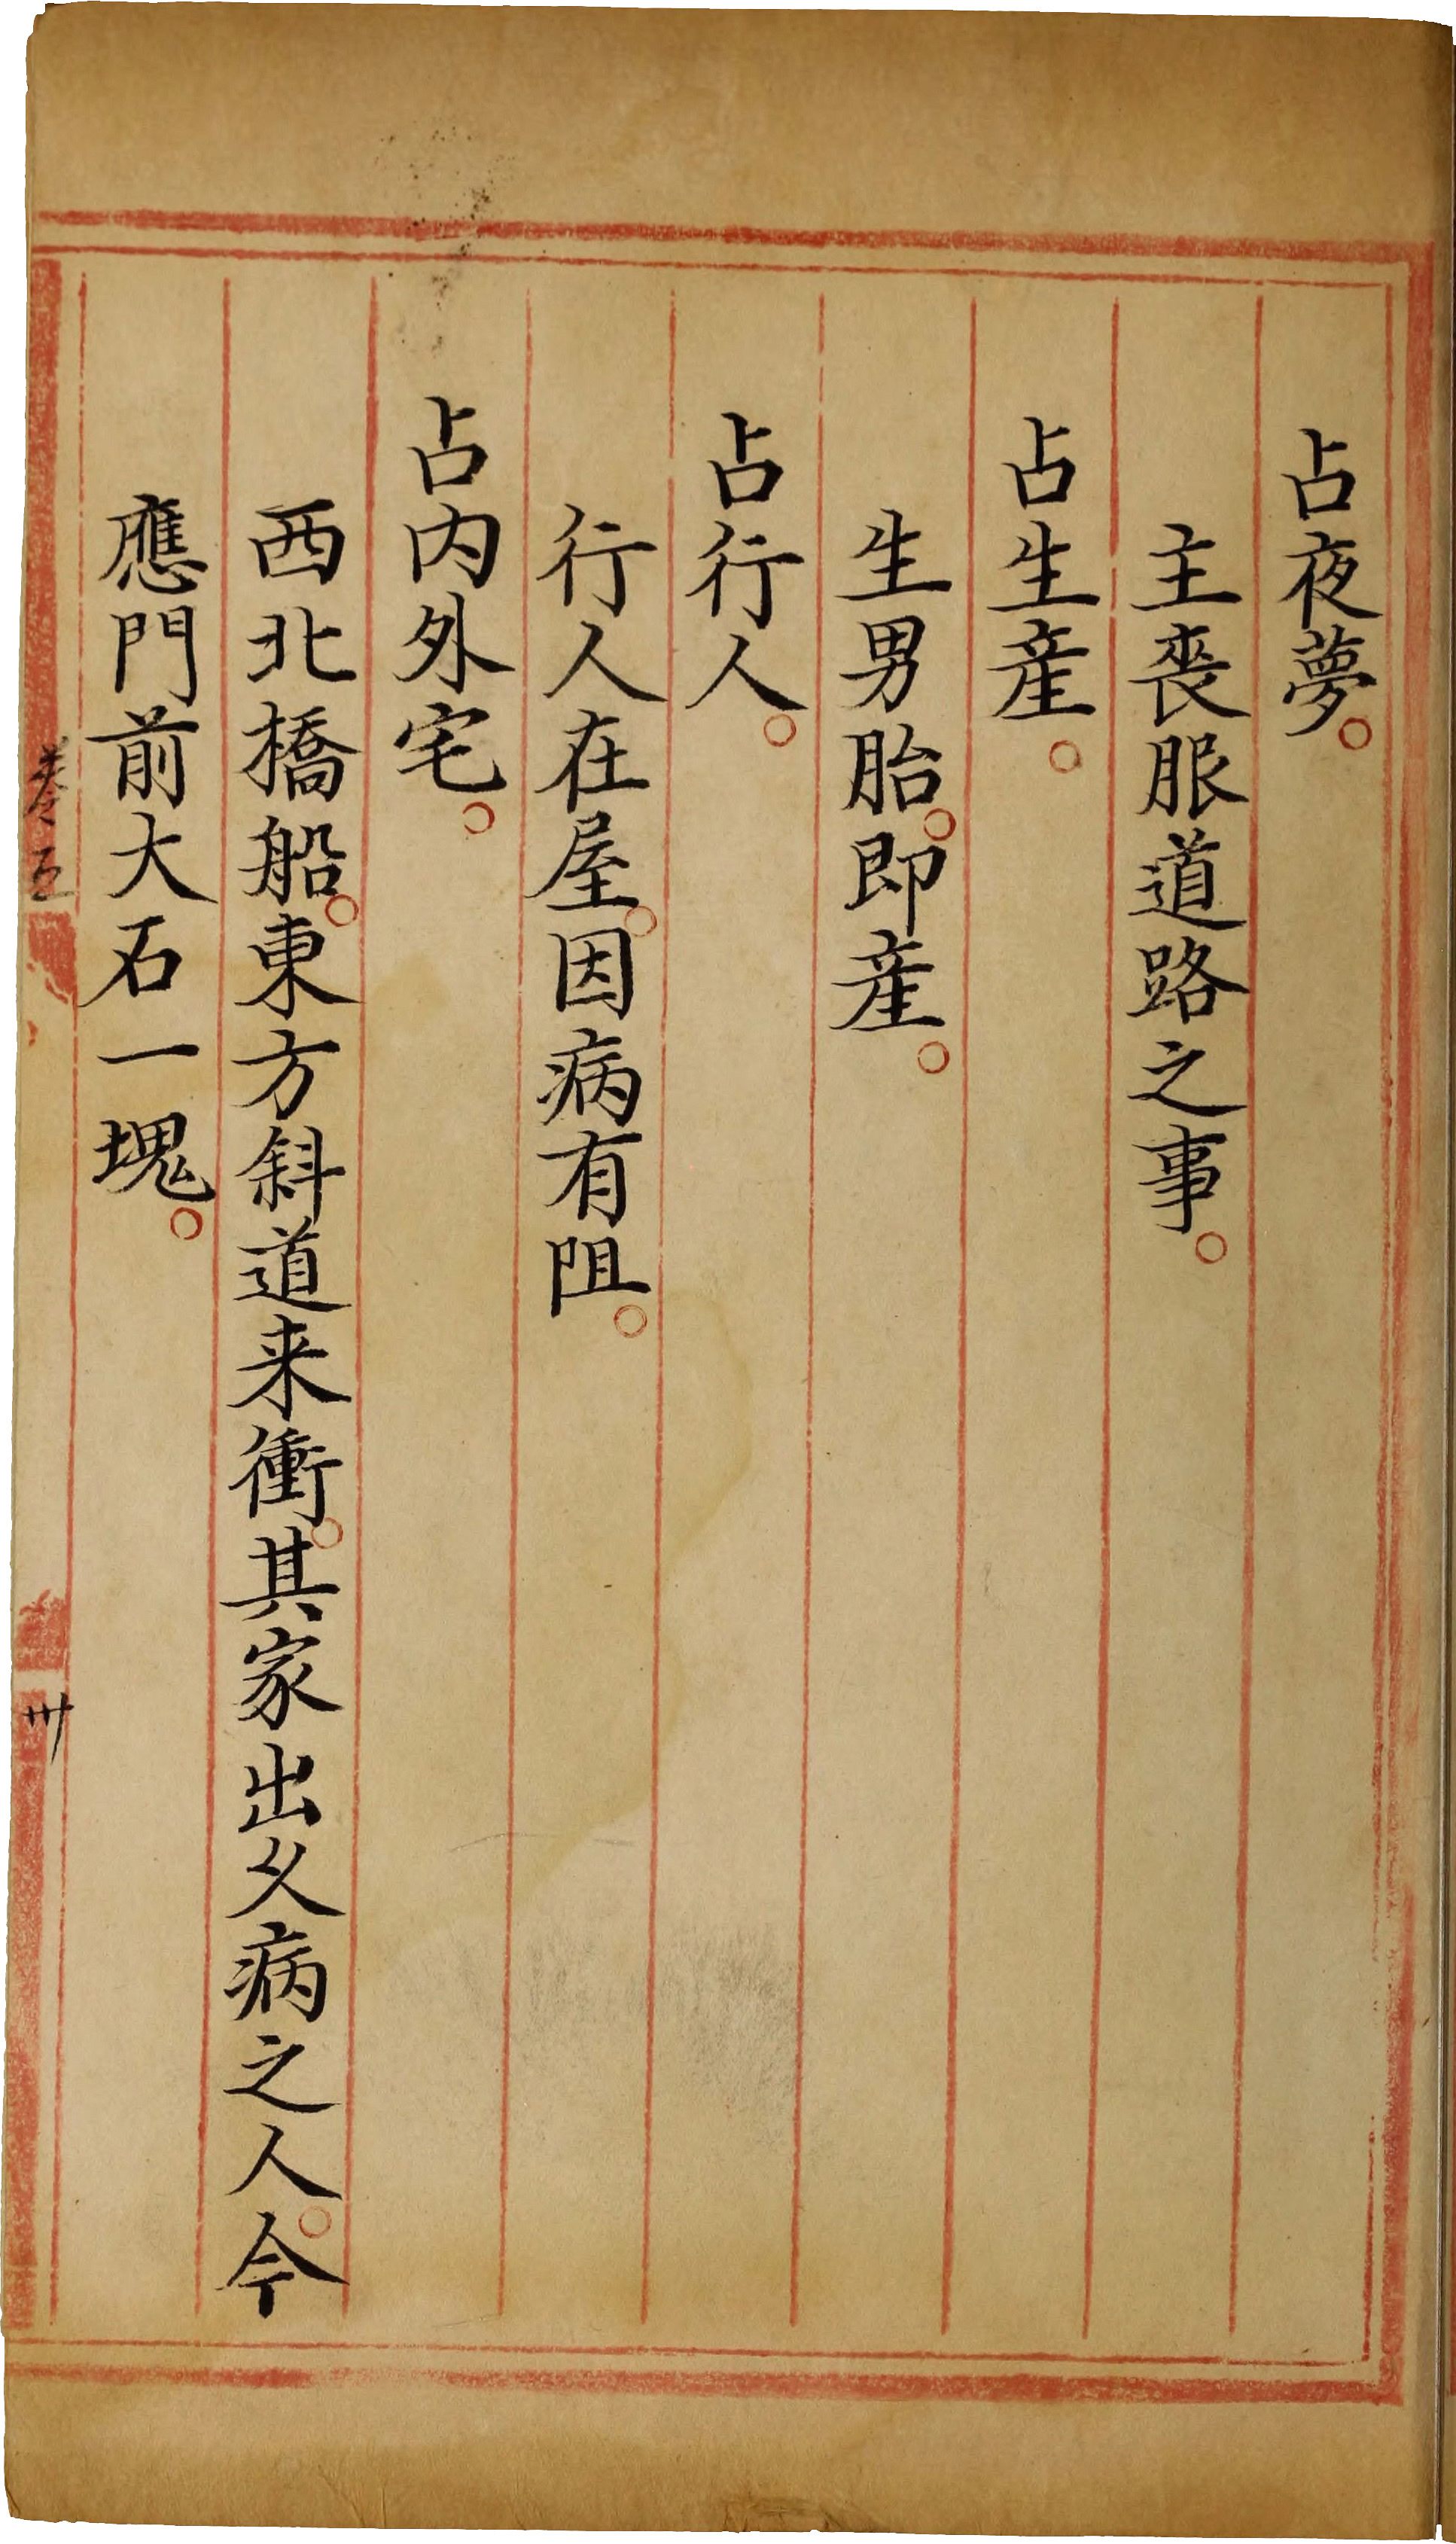 占夜夢。
主喪服道路之事。
占生産。
生男胎。即産。
占行人。
行人在屋。因病有阻。
占内外宅。
西北橋船。東方斜道来衝。其家出久病之人。今
應門前大石一塊。
卷五
卅